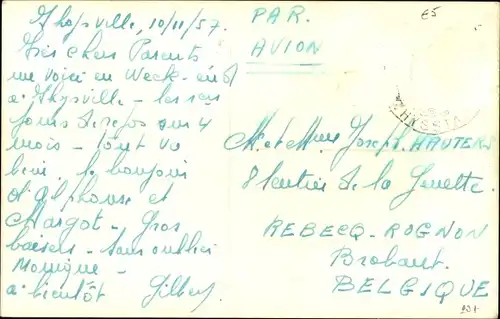 Ghysville, 10/11/57.
Très chers Parents
me voici en Week-end
à Ghysville - les 1ers
jours de repos sur 4
mois - tout va
bien. le bonjour
d'Alphonse et
Margot - Gros
baisers - sans oublier
Monique -
à bientôt Gilbert
PAR.
AVION
£5
M. et Mme Joseph HAUTERS
8 Sentier de la Genette.
REBECQ-ROGNON
Brabant.
BELGIQUE